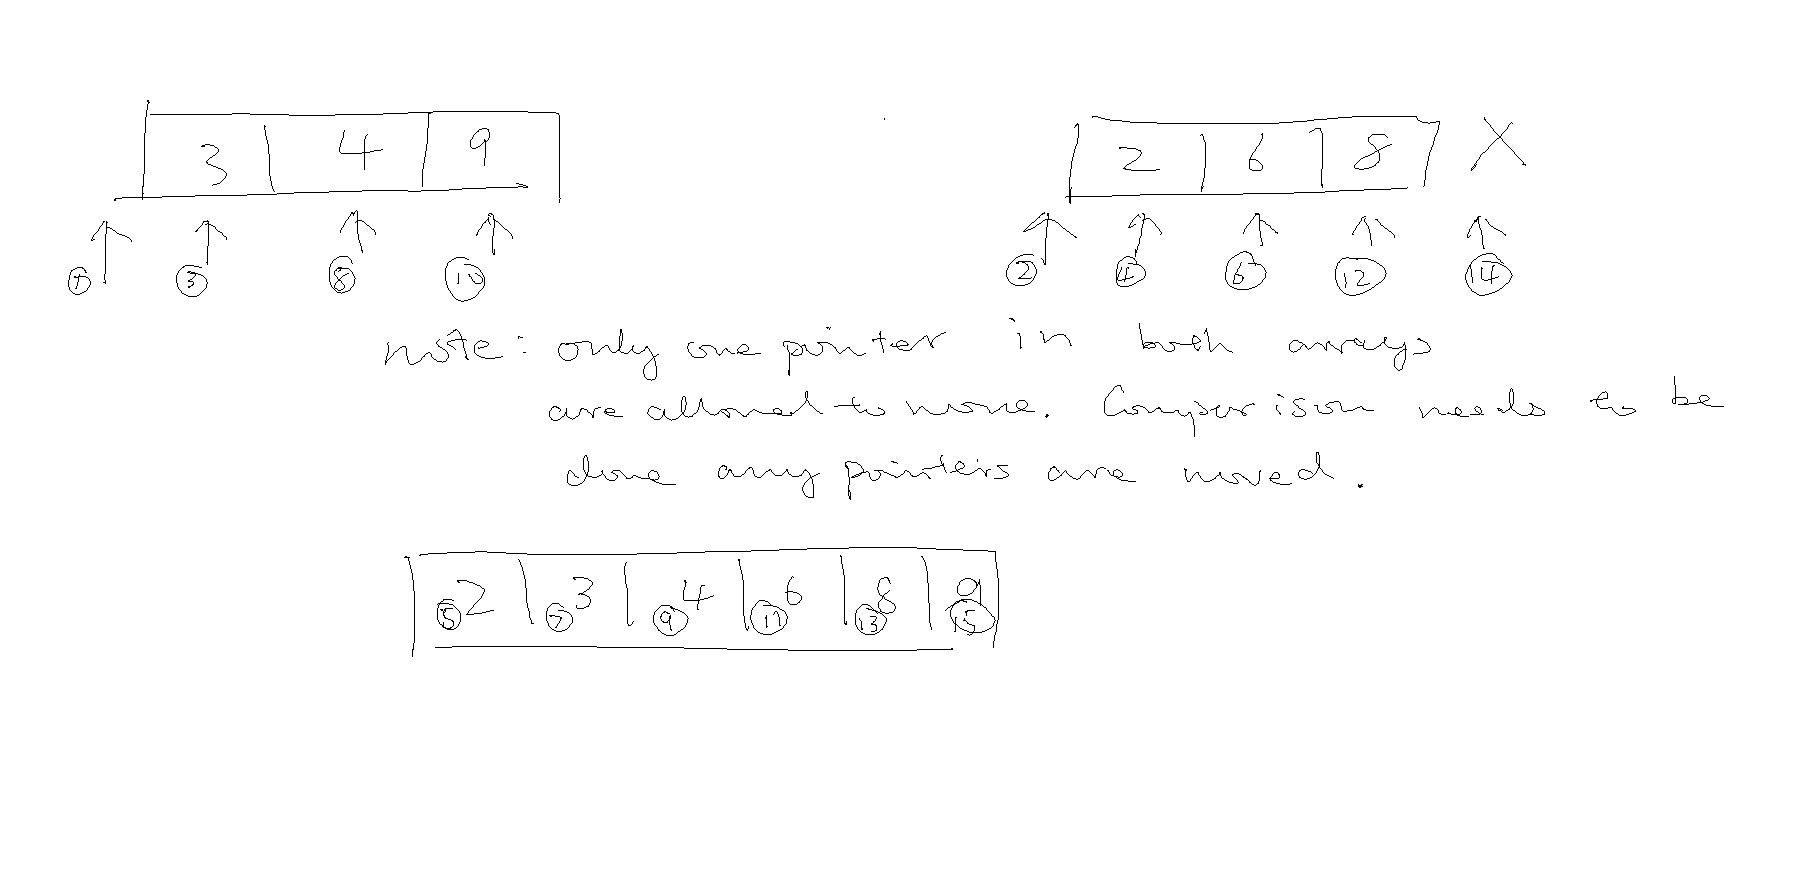 3 4 9
2 6 8 X
① ③ ⑧ ⑩
② ④ ⑥ ⑫ ⑭
note: only one pointer in both arrays
are allowed to move. Comparison needs to be
done any pointers are moved.
⑤ 2 ⑦ 3 ⑨ 4 ⑪ 6 ⑬ 8 ⑮ 9